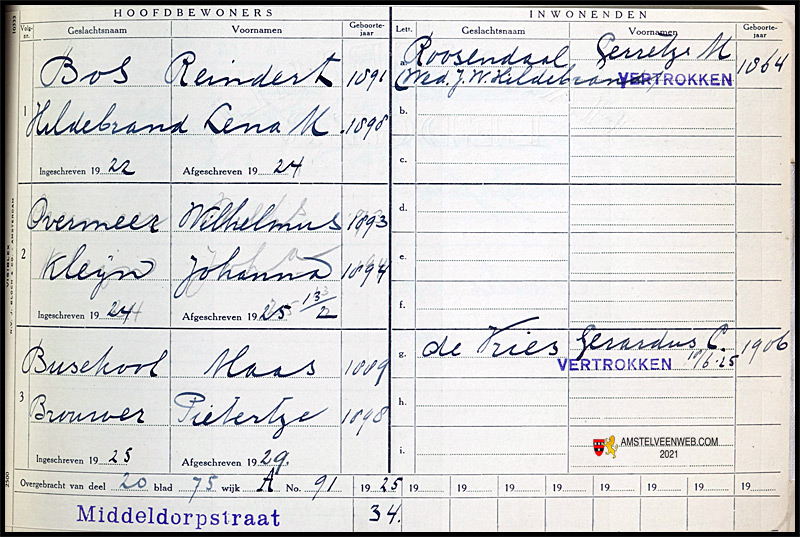 HOOFDBEWONERS
Volg-nr. Geslachtsnaam Voornamen Geboorte-jaar
Bos Reindert 1891
1
Hildebrand Lena M. 1898
Ingeschreven 19 22 Afgeschreven 19 24
Overmeer Wilhelmus 1893
2
Kleijn Johanna 1894
Ingeschreven 19 24 Afgeschreven 19 25 13/2
Busekool Maas 1889
3
Brouwer Pietertje 1898
Ingeschreven 19 25 Afgeschreven 19 29.
INWONENDEN
Lettr. Geslachtsnaam Voornamen Geboorte-jaar
a. Roosendaal Gerretje M 1864
(Wed. J. W. Hildebrand) VERTROKKEN
b.
c.
d.
e.
f.
g. de Vries Gerardus C. 1906
VERTROKKEN 18/6-25
h.
i.
AMSTELVEENWEB.COM
2021
Overgebracht van deel 20 blad 75 wijk A No. 91 19 25 19 19 19 19 19 19 19 19
Middeldorpstraat 34.